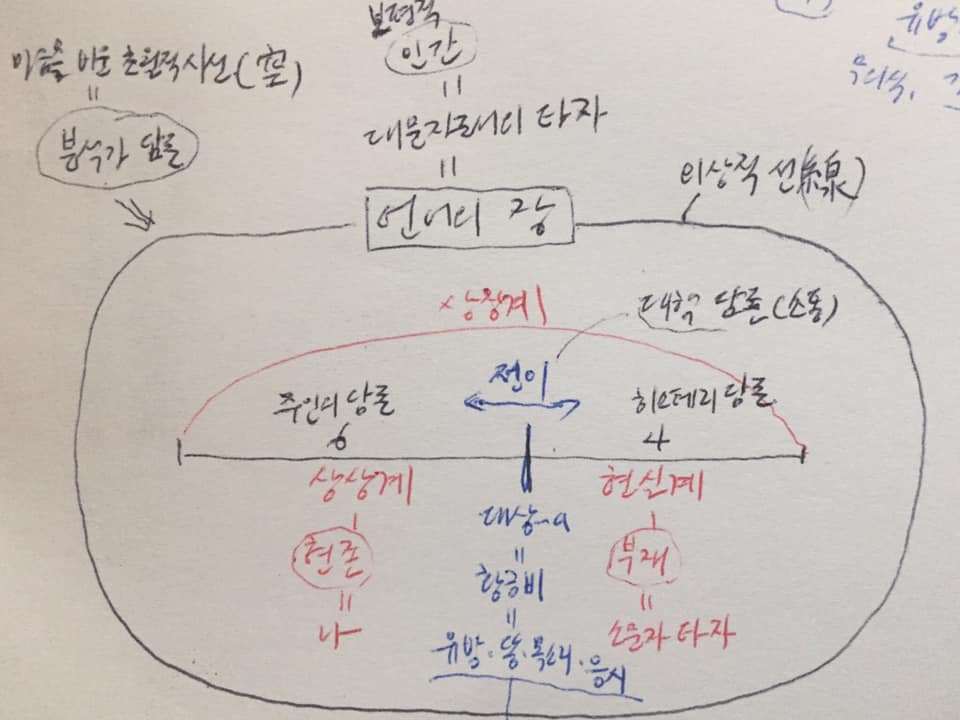 보편적
인간
유방
무의식,
마음을 비운 초월적 시선(空)
분석가 담론
대문자로서의 타자
언어의 장
이상적 선(線)
상징계
대학 담론(소통)
전이
주인의 담론
6
히스테리 담론
4
상상계
현실계
대상-a
현존
부재
황금비
나
소문자 타자
유방·똥·목소리·응시